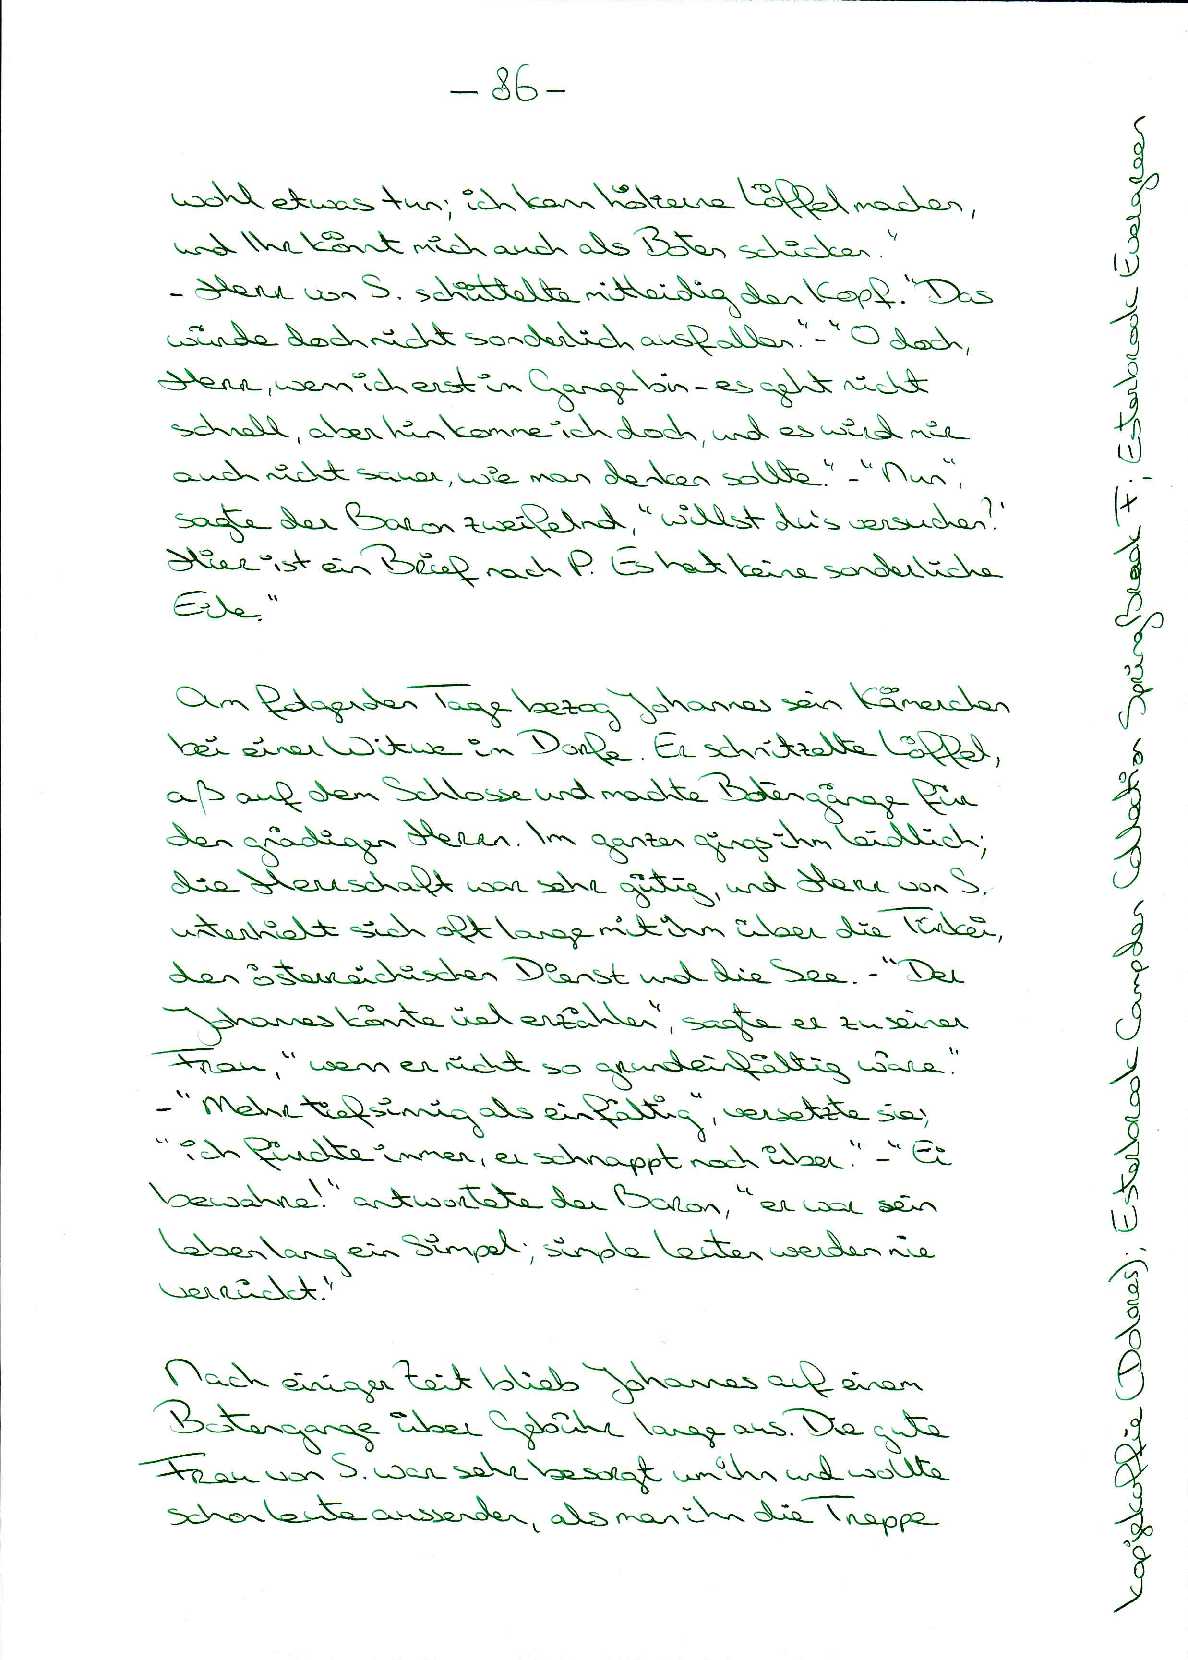 — 86 —
wohl etwas tun; ich kann hölzerne Löffel machen,
und Ihr könnt mich auch als Boten schicken."
- Herr von S. schüttelte mitleidig den Kopf. "Das
würde doch nicht sonderlich ausfallen." - "O doch,
Herr, wenn ich erst im Gange bin - es geht nicht
schnell, aber hin komme ich doch, und es wird mir
auch nicht sauer, wie man denken sollte." - "Nun",
sagte der Baron zweifelnd, "willst du's versuchen?"
Hier ist ein Brief nach P. Es hat keine sonderliche
Eile."
Am folgenden Tage bezog Johannes sein Kämmerchen
bei einer Witwe im Dorfe. Er schnitzelte Löffel,
aß auf dem Schlosse und machte Botengänge für
den gnädigen Herrn. Im ganzen gings ihm leidlich;
die Herrschaft war sehr gütig, und Herr von S.
unterhielt sich oft lange mit ihm über die Türkei,
den österreichischen Dienst und die See. - "Der
Johannes könnte viel erzählen", sagte er zu seiner
Frau, "wenn er nicht so grundeinfältig wäre."
- "Mehr tiefsinnig als einfältig", versetzte sie;
"ich fürchte immer, er schnappt noch über." - "Ei
bewahre!" antwortete der Baron, "er war sein
Leben lang ein Simpel; simple Leuten werden nie
verrückt."
Nach einiger Zeit blieb Johannes auf einem
Botengange über Gebühr lange aus. Die gute
Frau von S. war sehr besorgt um ihn und wollte
schon Leute aussenden, als man ihn die Treppe
(Dolores); Esterbrook Camden Collection Spring Break F; Esterbrook Evergreen